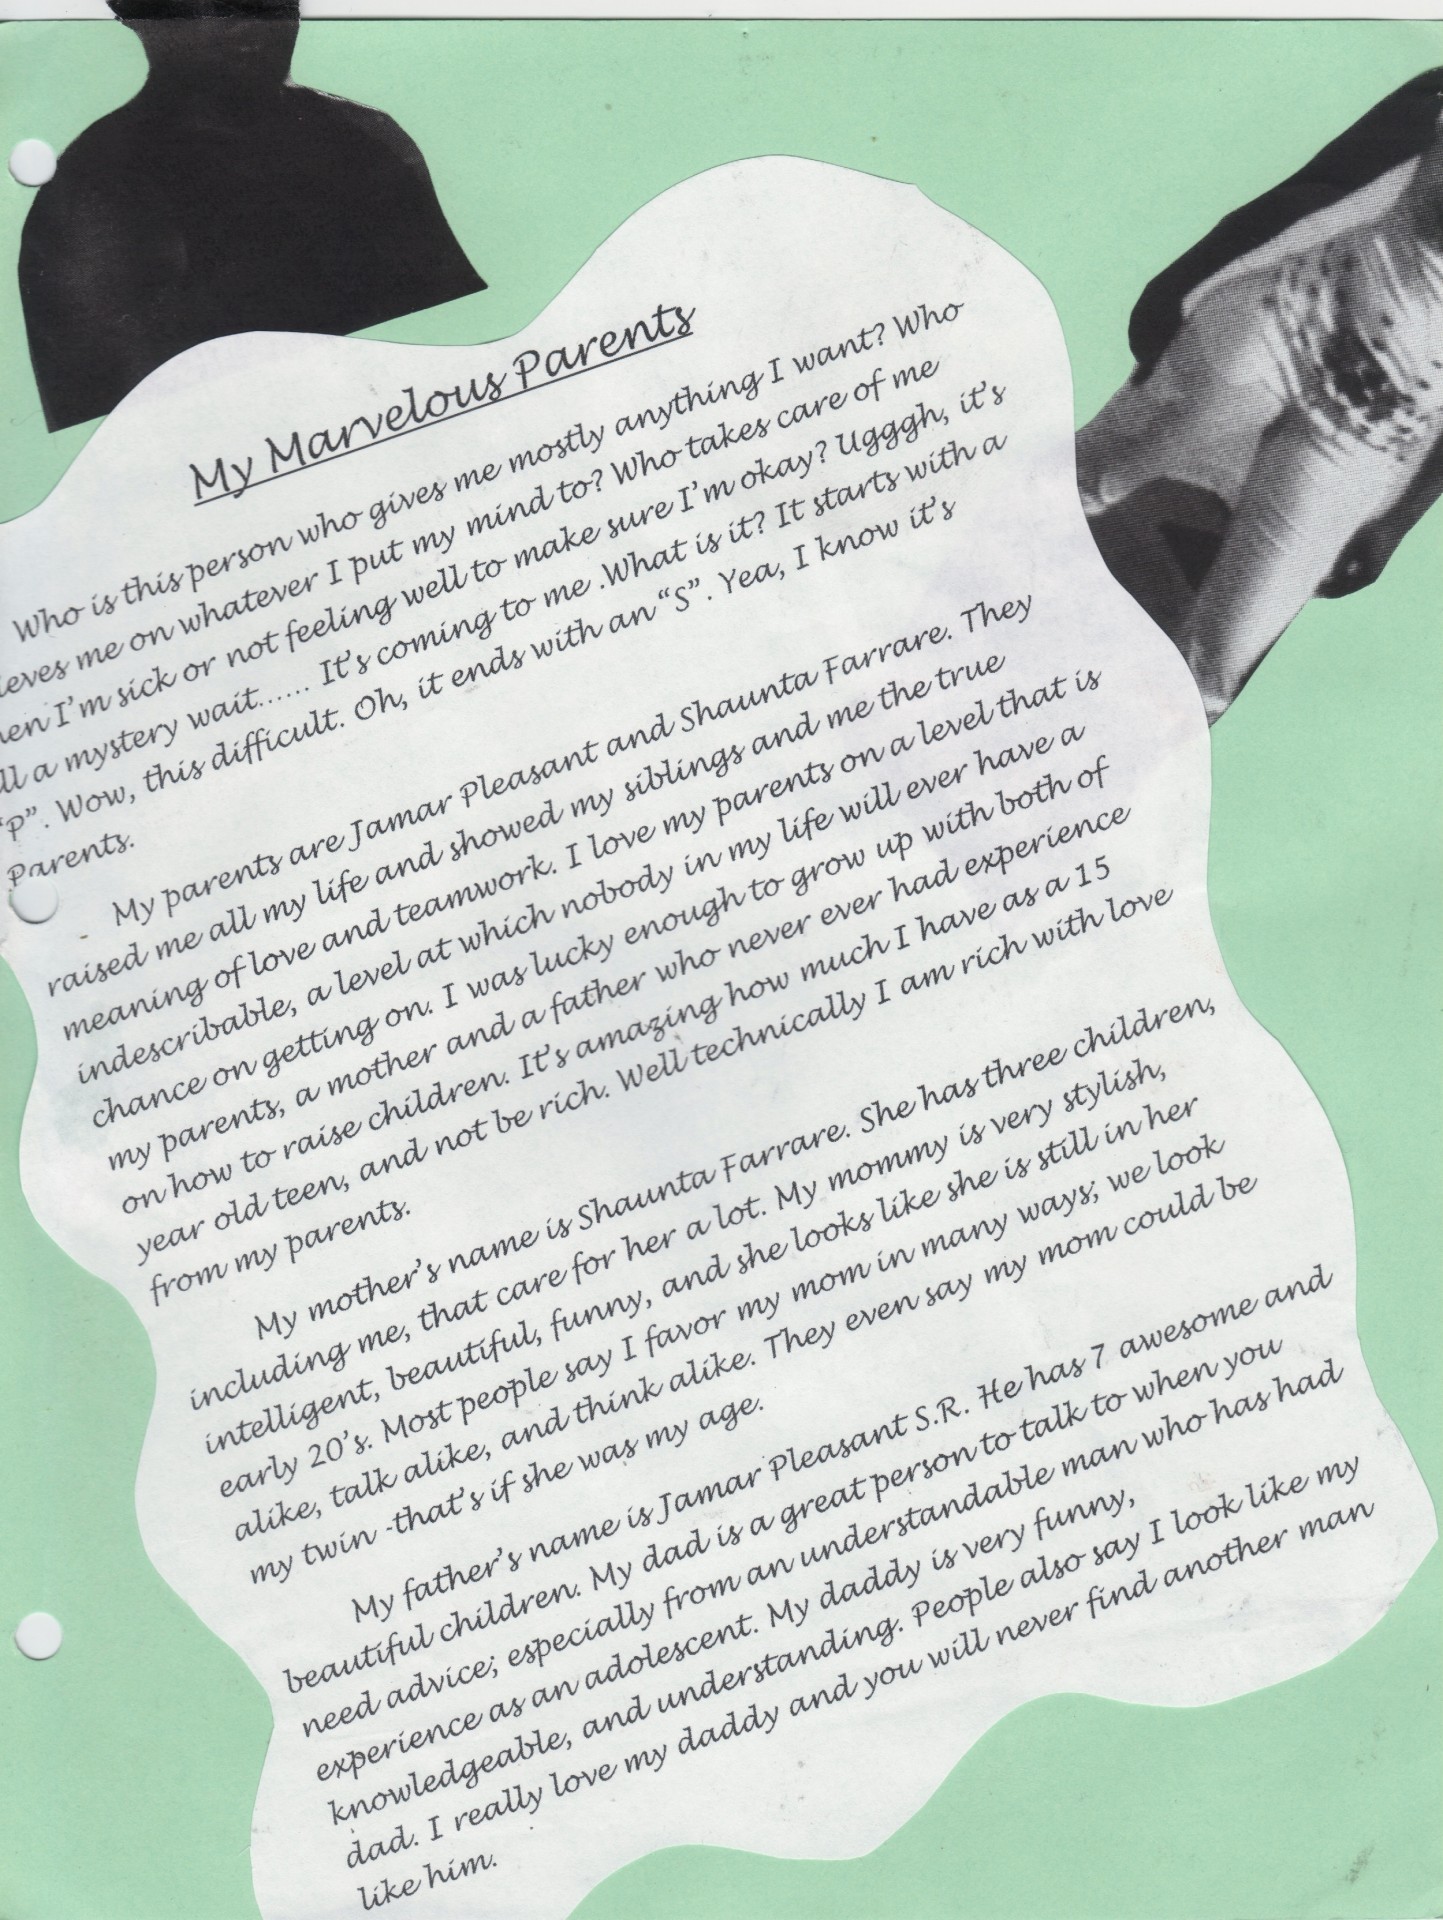 My Marvelous Parents
Who is this person who gives me mostly anything I want? Who
me on whatever I put my mind to? Who takes care of me
I'm sick or not feeling well to make sure I'm okay? Ugggh, it's
a mystery wait...... It's coming to me .What is it? It starts with a
"P". Wow, this difficult. Oh, it ends with an "S". Yea, I know it's
Parents.
My parents are Jamar Pleasant and Shaunta Farrare. They
raised me all my life and showed my siblings and me the true
meaning of love and teamwork. I love my parents on a level that is
indescribable, a level at which nobody in my life will ever have a
chance on getting on. I was lucky enough to grow up with both of
my parents, a mother and a father who never ever had experience
on how to raise children. It's amazing how much I have as a 15
year old teen, and not be rich. Well technically I am rich with love
from my parents.
My mother's name is Shaunta Farrare. She has three children,
including me, that care for her a lot. My mommy is very stylish,
intelligent, beautiful, funny, and she looks like she is still in her
early 20's. Most people say I favor my mom in many ways; we look
alike, talk alike, and think alike. They even say my mom could be
my twin -that's if she was my age.
My father's name is Jamar Pleasant S.R. He has 7 awesome and
beautiful children. My dad is a great person to talk to when you
need advice; especially from an understandable man who has had
experience as an adolescent. My daddy is very funny,
knowledgeable, and understanding. People also say I look like my
dad. I really love my daddy and you will never find another man
like him.